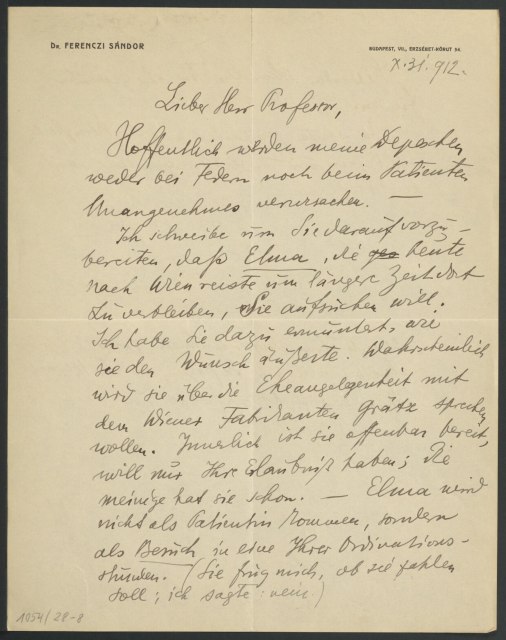 Dr. FERENCZI SÁNDOR
BUDAPEST, VII., ERZSÉBET-KÖRUT 54.
X. 31. 912.
Lieber Herr Professor,
Hoffentlich werden meine Depeschen
weder bei Federn noch beim Patienten
Unangenehmes verursachen. —
Ich schreibe um Sie darauf vorzu-
bereiten, daß Elma, die heute
nach Wien reiste um längere Zeit dort
zu verbleiben, Sie aufsuchen will.
Ich habe sie dazu ermuntert, wie
sie den Wunsch äußerte. Wahrscheinlich
wird sie über die Eheangelegenheit mit
dem Wiener Fabrikanten Grätz sprechen
wollen. Innerlich ist sie offenbar bereit,
will nur Ihre Erlaubniß haben; die
meinige hat sie schon. — Elma wird
nicht als Patientin kommen, sondern
als Besuch in eine Ihrer Ordinations-
stunden. (Sie frug mich, ob sie zahlen
soll; ich sagte: nein.)
1054/28-8